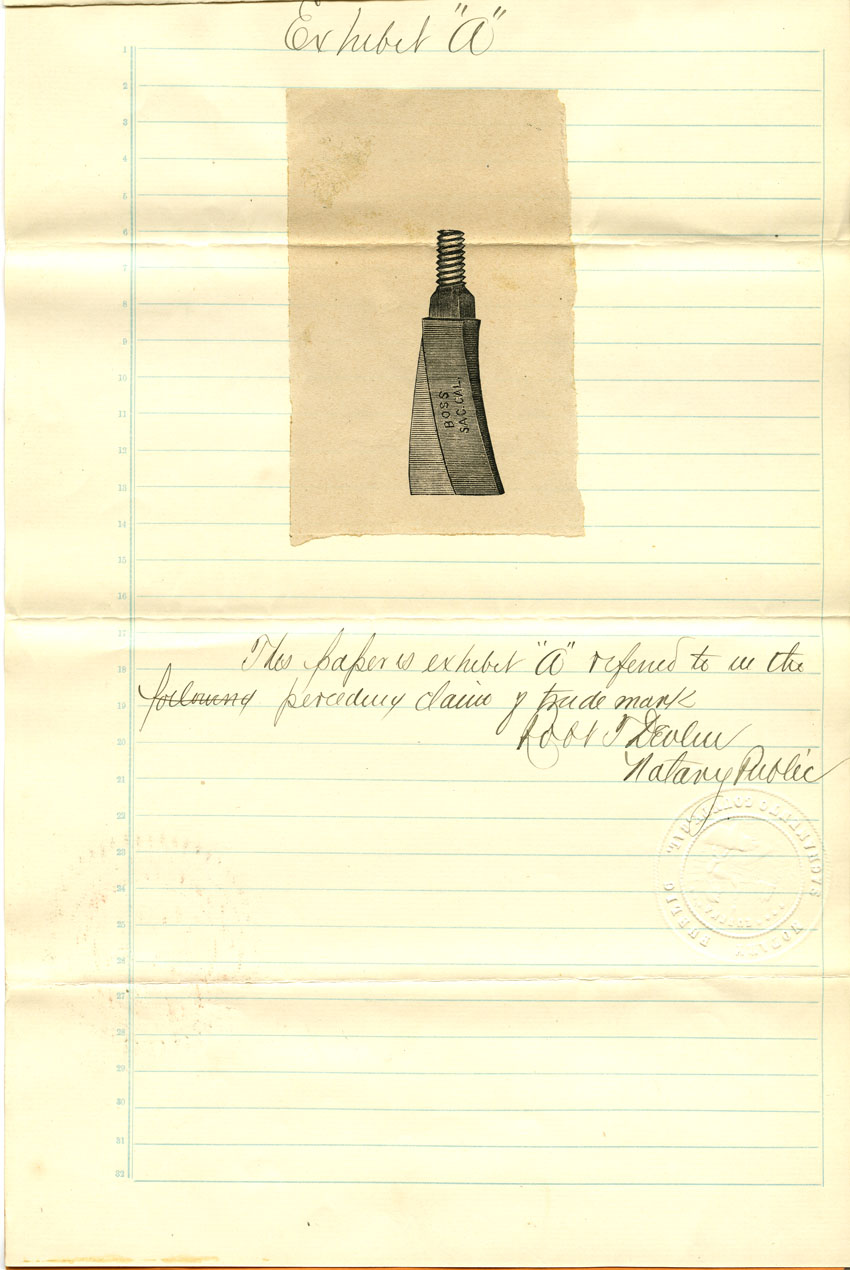 Exhibit "A"
1
2
3
4
5
6
7
8
9
10
11
12
13
14
15
16
17
18
19
20
21
22
23
24
25
26
27
28
29
30
31
32
BOSS
SAC. CAL.
This paper is exhibit "A" refered to in the
following perceding claim of trade mark
Robt T Devlin
Notary Public
SACRAMENTO COUNTY CAL.
NOTARY PUBLIC